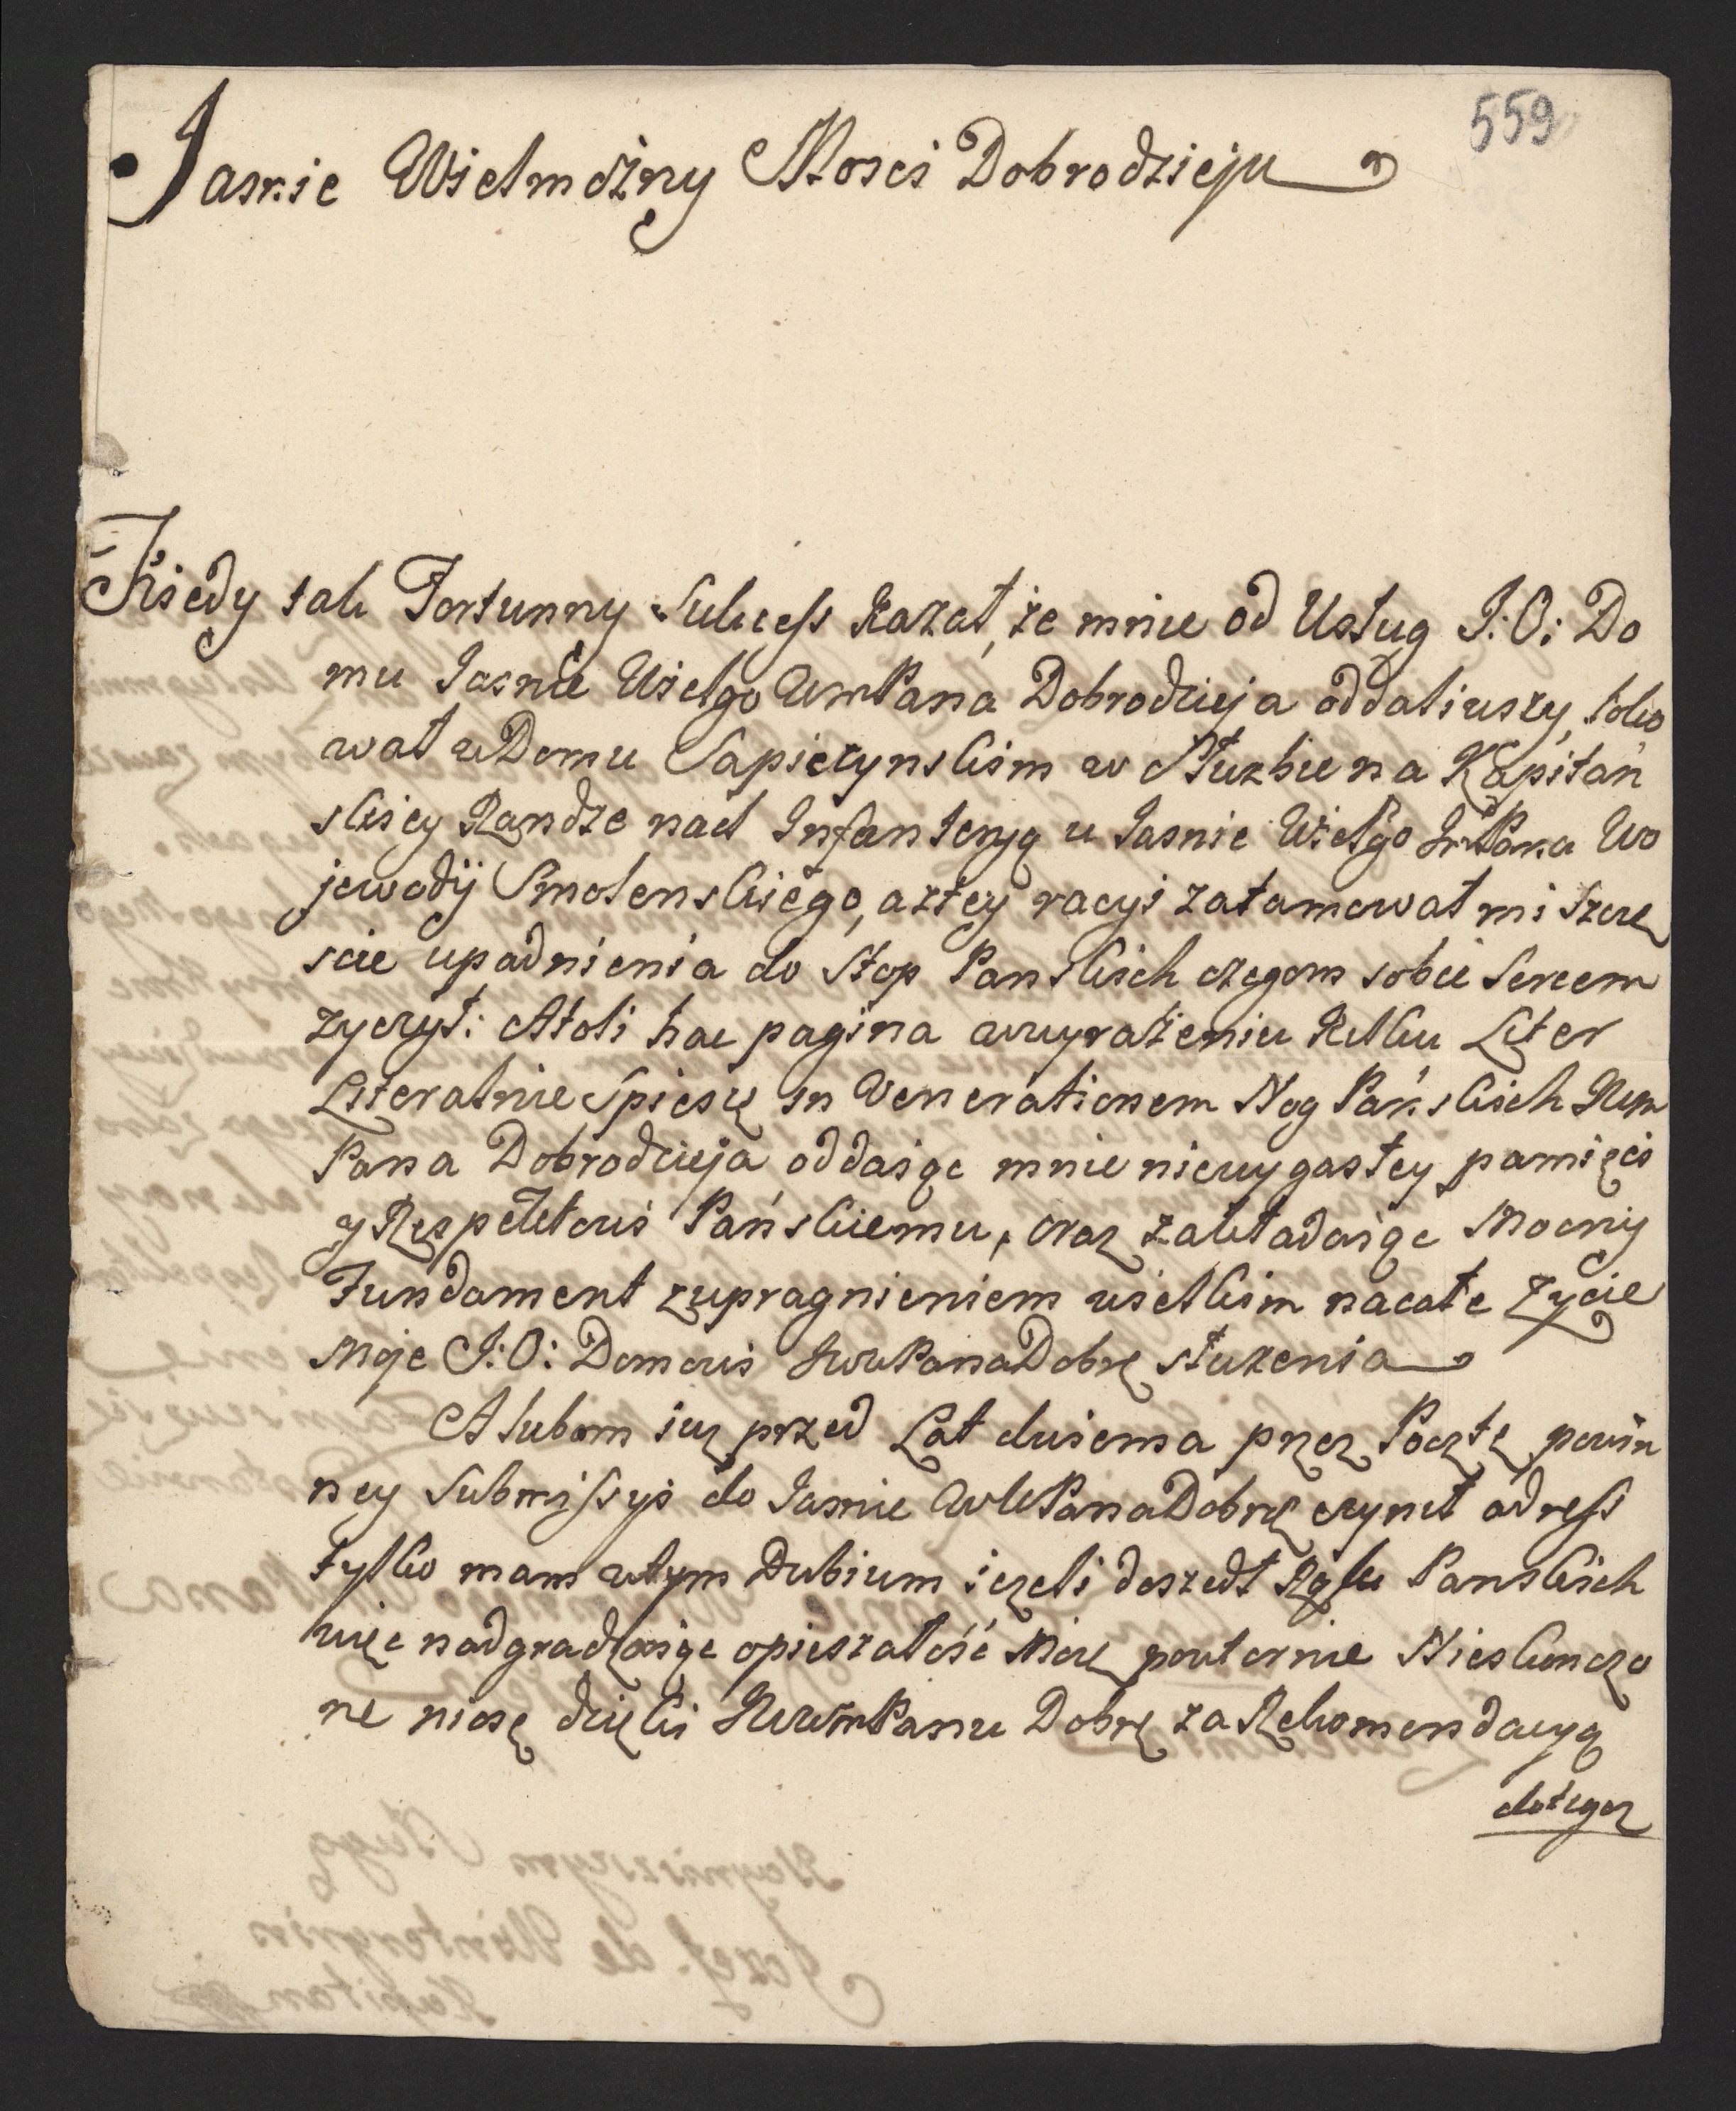 559
Jasnie Wielmożny Mosci Dobrodzieju
Kiedy tak Fortunny Sukcess kazał, że mnie od Usług J: O: Do
mu Jasnie Wielgo WmPana Dobrodzieja oddaliwszy, loko
wał w Domu Sapiezynskim w Służbie na Kapitań
skiey Randze nad Infanteryą u Jasnie Wielgo Pana Wo
jewodij Smolenskiego, a ztey racyi zatamował mi szczę
scie upadnienia do Stop Panskich czegom sobie Sercem
zyczył: Atoli hac pagina wwyrażeniu kilku Liter
Literalnie Spieszę in Venerationem Nog Pańskich
Pana Dobrodzieja oddaiąc mnie niewygasłey pamięci
y Respektowi Pańskiemu, oraz zakładaiąc Mocny
Fundament zupragnieniem wielkim nacałe Zycie
Moje J: O: Domowi Pana Dobrę służenia
A lubom iuz przed Lat dwiema przez Pocztę powin
ney Submissyi do Jasnie Pana Dobrę czynił adress
tylko mam wtym Dubium iezeli doszedł Rąk Panskich
więc nadgradzaiąc opieszałość Moię powtornie Nieskonczo
ne niosę dzięki Panu Dobrę za Rekomendacyą
dotegoz